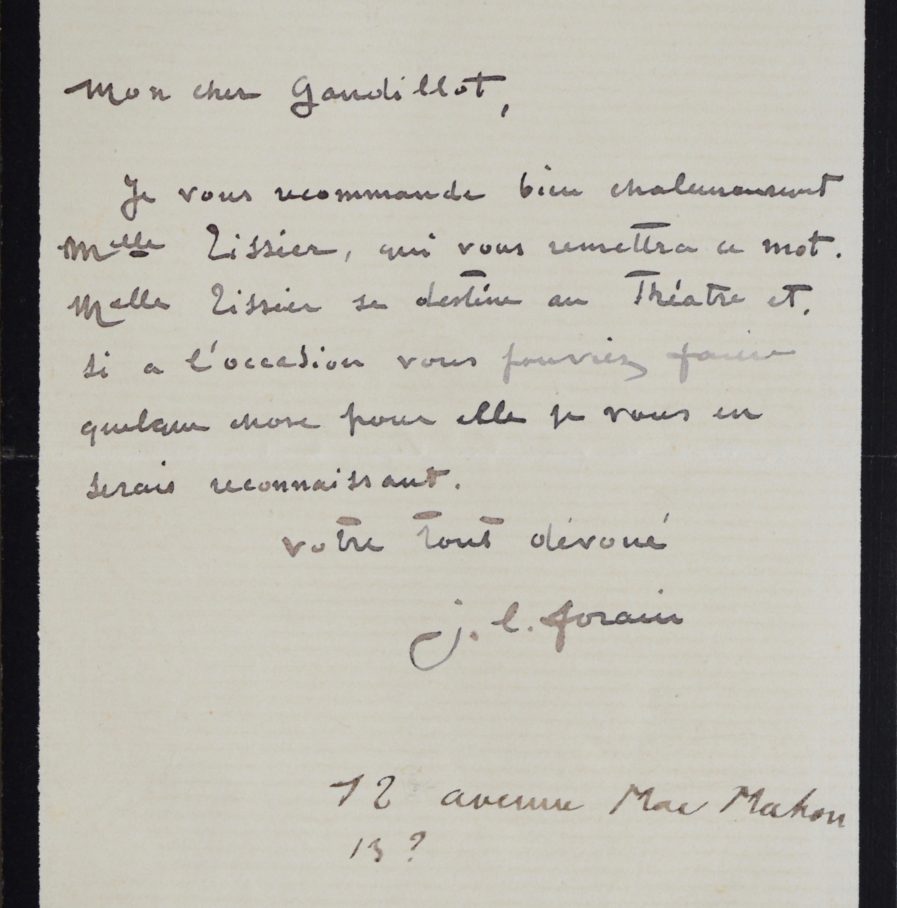 Mon cher Gandillot,
Je vous recommande bien chaleureusement
Melle Tissier, qui vous remettra ce mot.
Melle Tissier se destine au Théatre et,
si a l'occasion vous pouviez faire
quelque chose pour elle je vous en
serais reconnaissant.
votre tout dévoué
j. l. forain
12 avenue Mac Mahon
13 ?